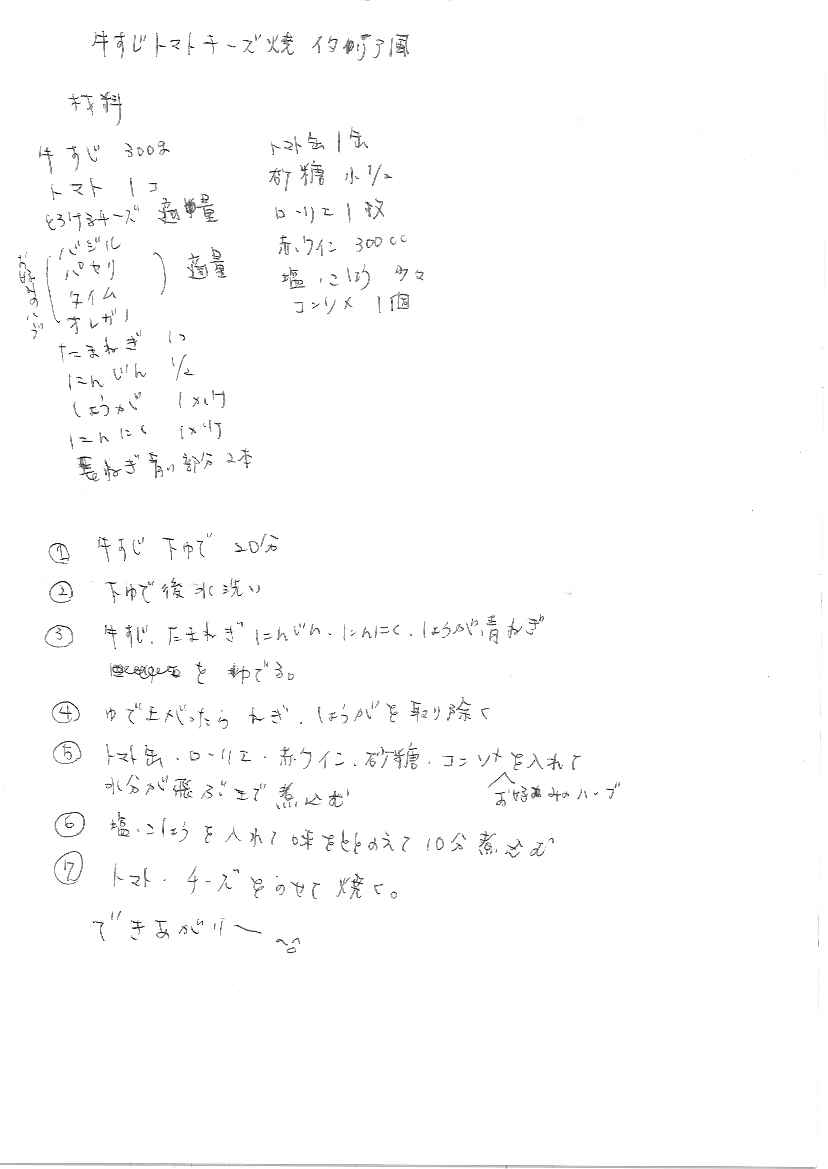 牛すじトマトチーズ焼 イタリア風
材料
牛すじ 300g
トマト 1コ
とろけるチーズ 適量
お好みのハーブ
バジル
パセリ
タイム
オレガノ
適量
たまねぎ 1コ
にんじん 1/2
しょうが 1かけ
にんにく 1かけ
長ねぎ青い部分 2本
トマト缶 1缶
砂糖 小1/2
ローリエ 1枚
赤ワイン 300cc
塩・こしょう 少々
コンソメ 1個
① 牛すじ 下ゆで 20分
② 下ゆで後水洗い
③ 牛すじ、たまねぎ にんじん・にんにく・しょうが、青ねぎ
をゆでる。
④ ゆで上がったら ねぎ、しょうがを取り除く
⑤ トマト缶・ローリエ・赤ワイン、砂糖・コンソメを入れて
お好みのハーブ
水分が飛ぶまで煮込む
⑥ 塩・こしょうを入れて味をととのえて10分煮込む
⑦ トマト・チーズをのせて焼く。
できあがりー